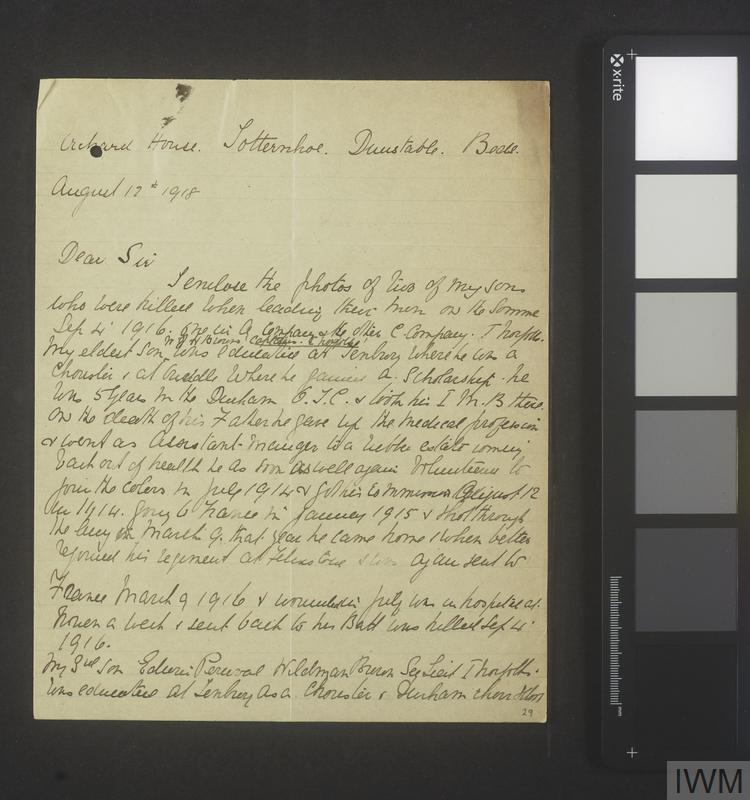 Orchard House. Totternhoe. Dunstable. Beds.
August 12th 1918
Dear Sir
I enclose the photos of two of my sons
who were killed when leading their men on the Somme
Sep 4th 1916. One in A Company & the other C Company. I Norfolks.
W Brown Captain
My eldest son was educated at Tenbury where he was a
Chorister & at where he gained a Scholarship. he
was 5 years in the Durham O.T.C. & took his I M.B there.
on the death of his Father he gave up the medical profession
& went as assistant manager to a rubber estate coming
back out of health he as soon as well again volunteered to
join the colors in July 1914 & got his Commission August 12
in 1914. going to France in January 1915 & shot through
the lung in March 9. that year he came home & when better
rejoined his regiment at Felixstowe & was again sent to
France March 9 1916 & wounded in July was in hospital at
Rouen a week & sent back to his Batt was killed Sep 4th
1916.
My 3rd son Edwin Percival Wildman Brown Sec Lieut I Norfolks.
was educated at Tenbury as a Chorister & Durham
29
x-rite
mm
IWM